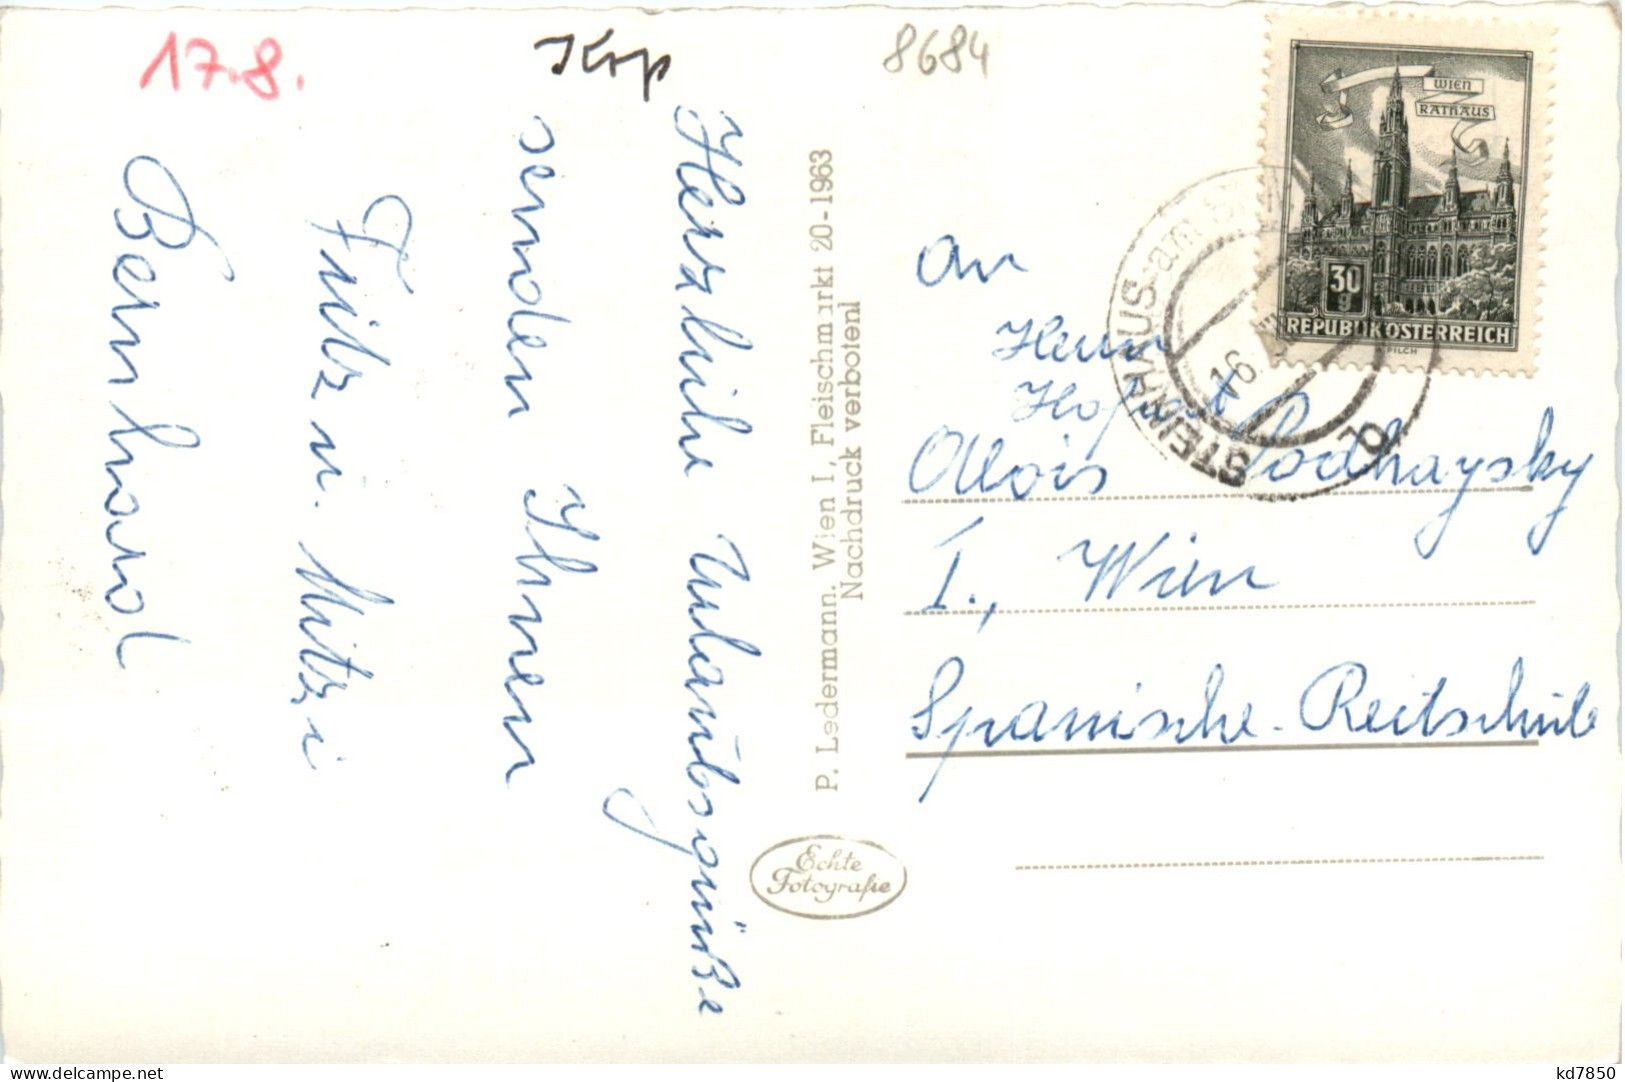 17.8.
Krp
8684
Herzliche Urlaubsgrüße
senden Ihnen
Fritz u. Mitzi
Bernhard
P. Ledermann. Wien I, Fleischmarkt 20-1963
Nachdruck verboten!
Echte
Fotografie
WIEN
RATHAUS
30
g
REPUBLIK ÖSTERREICH
PILCH
STEINHAUS am
16.
An
Herrn
Hofrat
Alois Podhaysky
I., Wien
Spanische-Reitschule
delcampe.net
kd7850